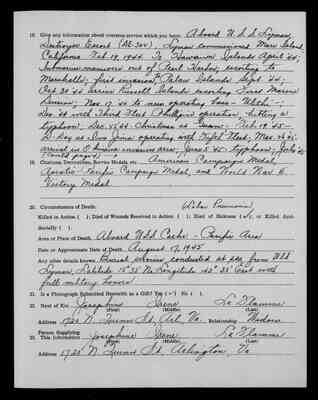 18. Give any information about overseas service which you have: Aboard U.S.S. Lyman,
Destroyer Escort (DE 302). Lyman commissioned Mare Island,
California Feb 19, 1944. To Hawaiian Islands April '44;
maneuvers out of Pearl Harbor; escorting to
Marshalls; first invasion Palau Islands Sept '44;
Oct 30 '44 Russell Islands escorting First Marine
Division; Nov 17 '44 to new operating base - Ulithi -;
Dec. '44 with Third Fleet Phillipine operation, hitting a
typhoon, Dec. 18 '44 Christmas in Guam; Feb. 19 '45 -
D-Day at Iwo Jima operating with Fifth Fleet; Mar. 26 '45
arrived in Okinawa invasion area; June 5 '45 typhoon; July '45
19. Citations, Decorations, Service Medals, etc. American Campaign Medal,
Asiatic-Pacific Campaign Medal, and World War II
Victory Medal
20. Circumstances of Death: Pneumonia
Killed in Action ( ); Died of Wounds Received in Action ( ); Died of Sickness (✓); or Killed Accidentally ( ).
Area or Place of Death Aboard U.S.S. - Pacific Area
Date or Approximate Date of Death August 17, 1945
Any other details known. Burial services conducted at sea from U.S.S.
Lyman, Latitude Longitude with
full military honors
21. Is a Photograph Submitted Herewith as a Gift? Yes (✓) No ( ).
22. Next of Kin Josephine Irene La Flamme
(First) (Middle) (Last)
Address 1725 N. Quinn St., Arl., Va. Relationship Widow
Person Supplying
23. This Information Josephine Irene La Flamme
(First) (Middle) (Last)
Address 1725 N. Quinn St., Arlington, Va